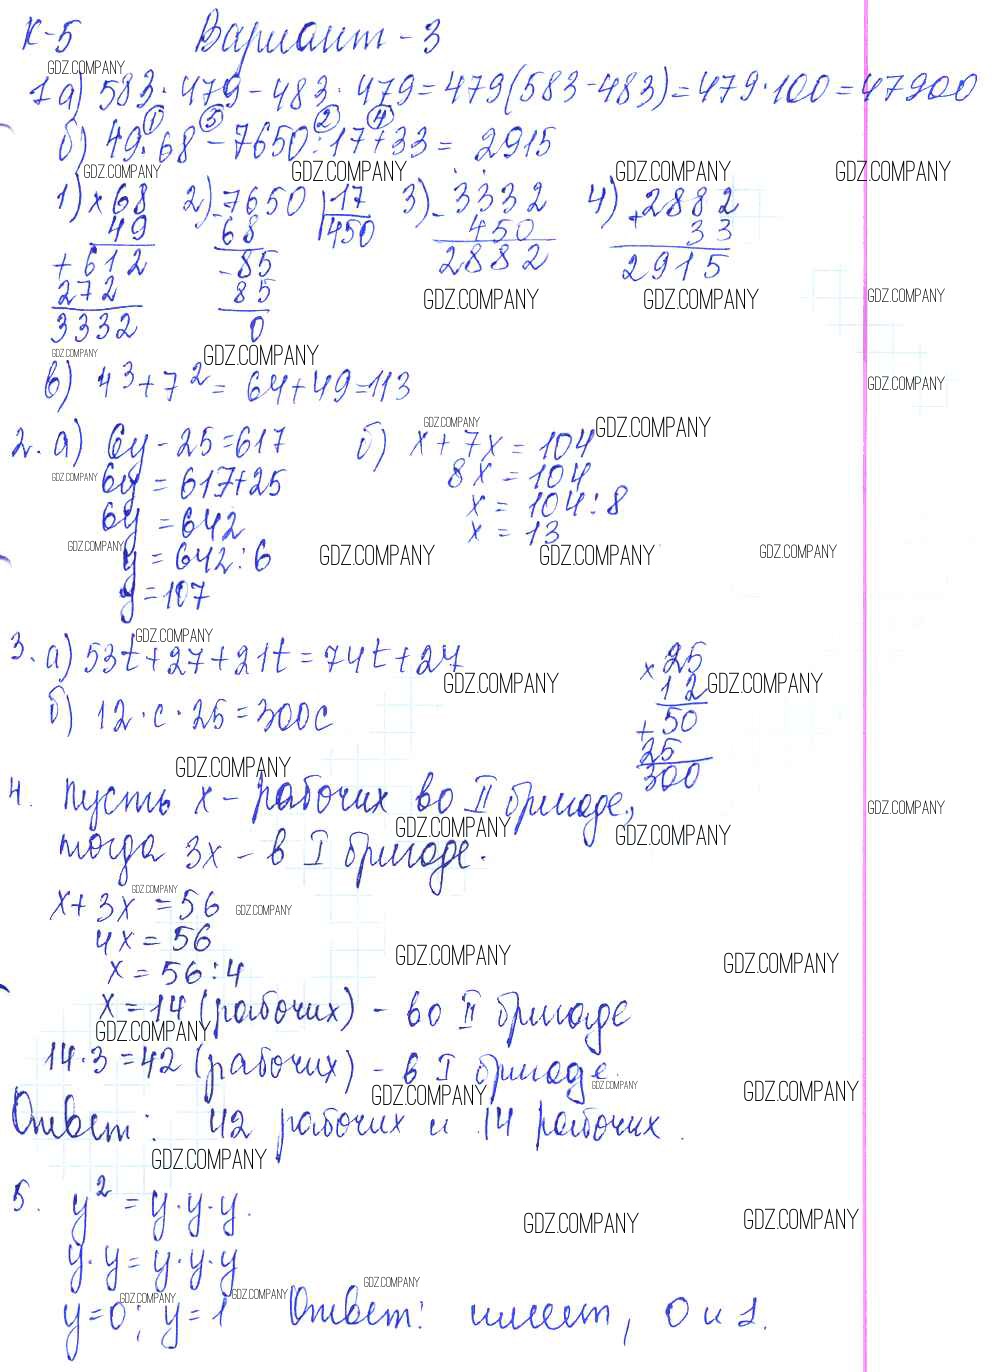 К-5 Вариант - 3
GDZ.COMPANY
1 а) 583 · 479 - 483 · 479 = 479(583 - 483) = 479 · 100 = 47900
1 3 2 4
б) 49 · 68 - 7650 : 17 + 33 = 2915
GDZ.COMPANY GDZ.COMPANY GDZ.COMPANY GDZ.COMPANY
1) × 68 2) - 7650 | 17 3) - 3332 4) + 2882
49 68 450 450 33
+ 612 - 85 2882 2915
272 85
3332 0
GDZ.COMPANY GDZ.COMPANY GDZ.COMPANY
GDZ.COMPANY GDZ.COMPANY
в) 4³ + 7² = 64 + 49 = 113
GDZ.COMPANY
GDZ.COMPANY GDZ.COMPANY
2. а) 6y - 25 = 617 б) x + 7x = 104
GDZ.COMPANY
6y = 617 + 25 8x = 104
6y = 642 x = 104 : 8
y = 642 : 6 x = 13
GDZ.COMPANY GDZ.COMPANY GDZ.COMPANY GDZ.COMPANY
y = 107
GDZ.COMPANY
3. а) 53t + 27 + 21t = 74t + 27 × 25
GDZ.COMPANY GDZ.COMPANY
б) 12 · c · 25 = 300c 12
+ 50
25
300
GDZ.COMPANY
4. Пусть x - рабочих во II бригаде,
GDZ.COMPANY GDZ.COMPANY GDZ.COMPANY
тогда 3x - в I бригаде.
GDZ.COMPANY GDZ.COMPANY
x + 3x = 56
4x = 56
GDZ.COMPANY GDZ.COMPANY
x = 56 : 4
x = 14 (рабочих) - во II бригаде
GDZ.COMPANY
14 · 3 = 42 (рабочих) - в I бригаде.
GDZ.COMPANY GDZ.COMPANY GDZ.COMPANY
Ответ: 42 рабочих и 14 рабочих.
GDZ.COMPANY
5. y² = y · y · y.
GDZ.COMPANY GDZ.COMPANY
y · y = y · y · y
GDZ.COMPANY GDZ.COMPANY GDZ.COMPANY
y = 0; y = 1 Ответ: имеет, 0 и 1.